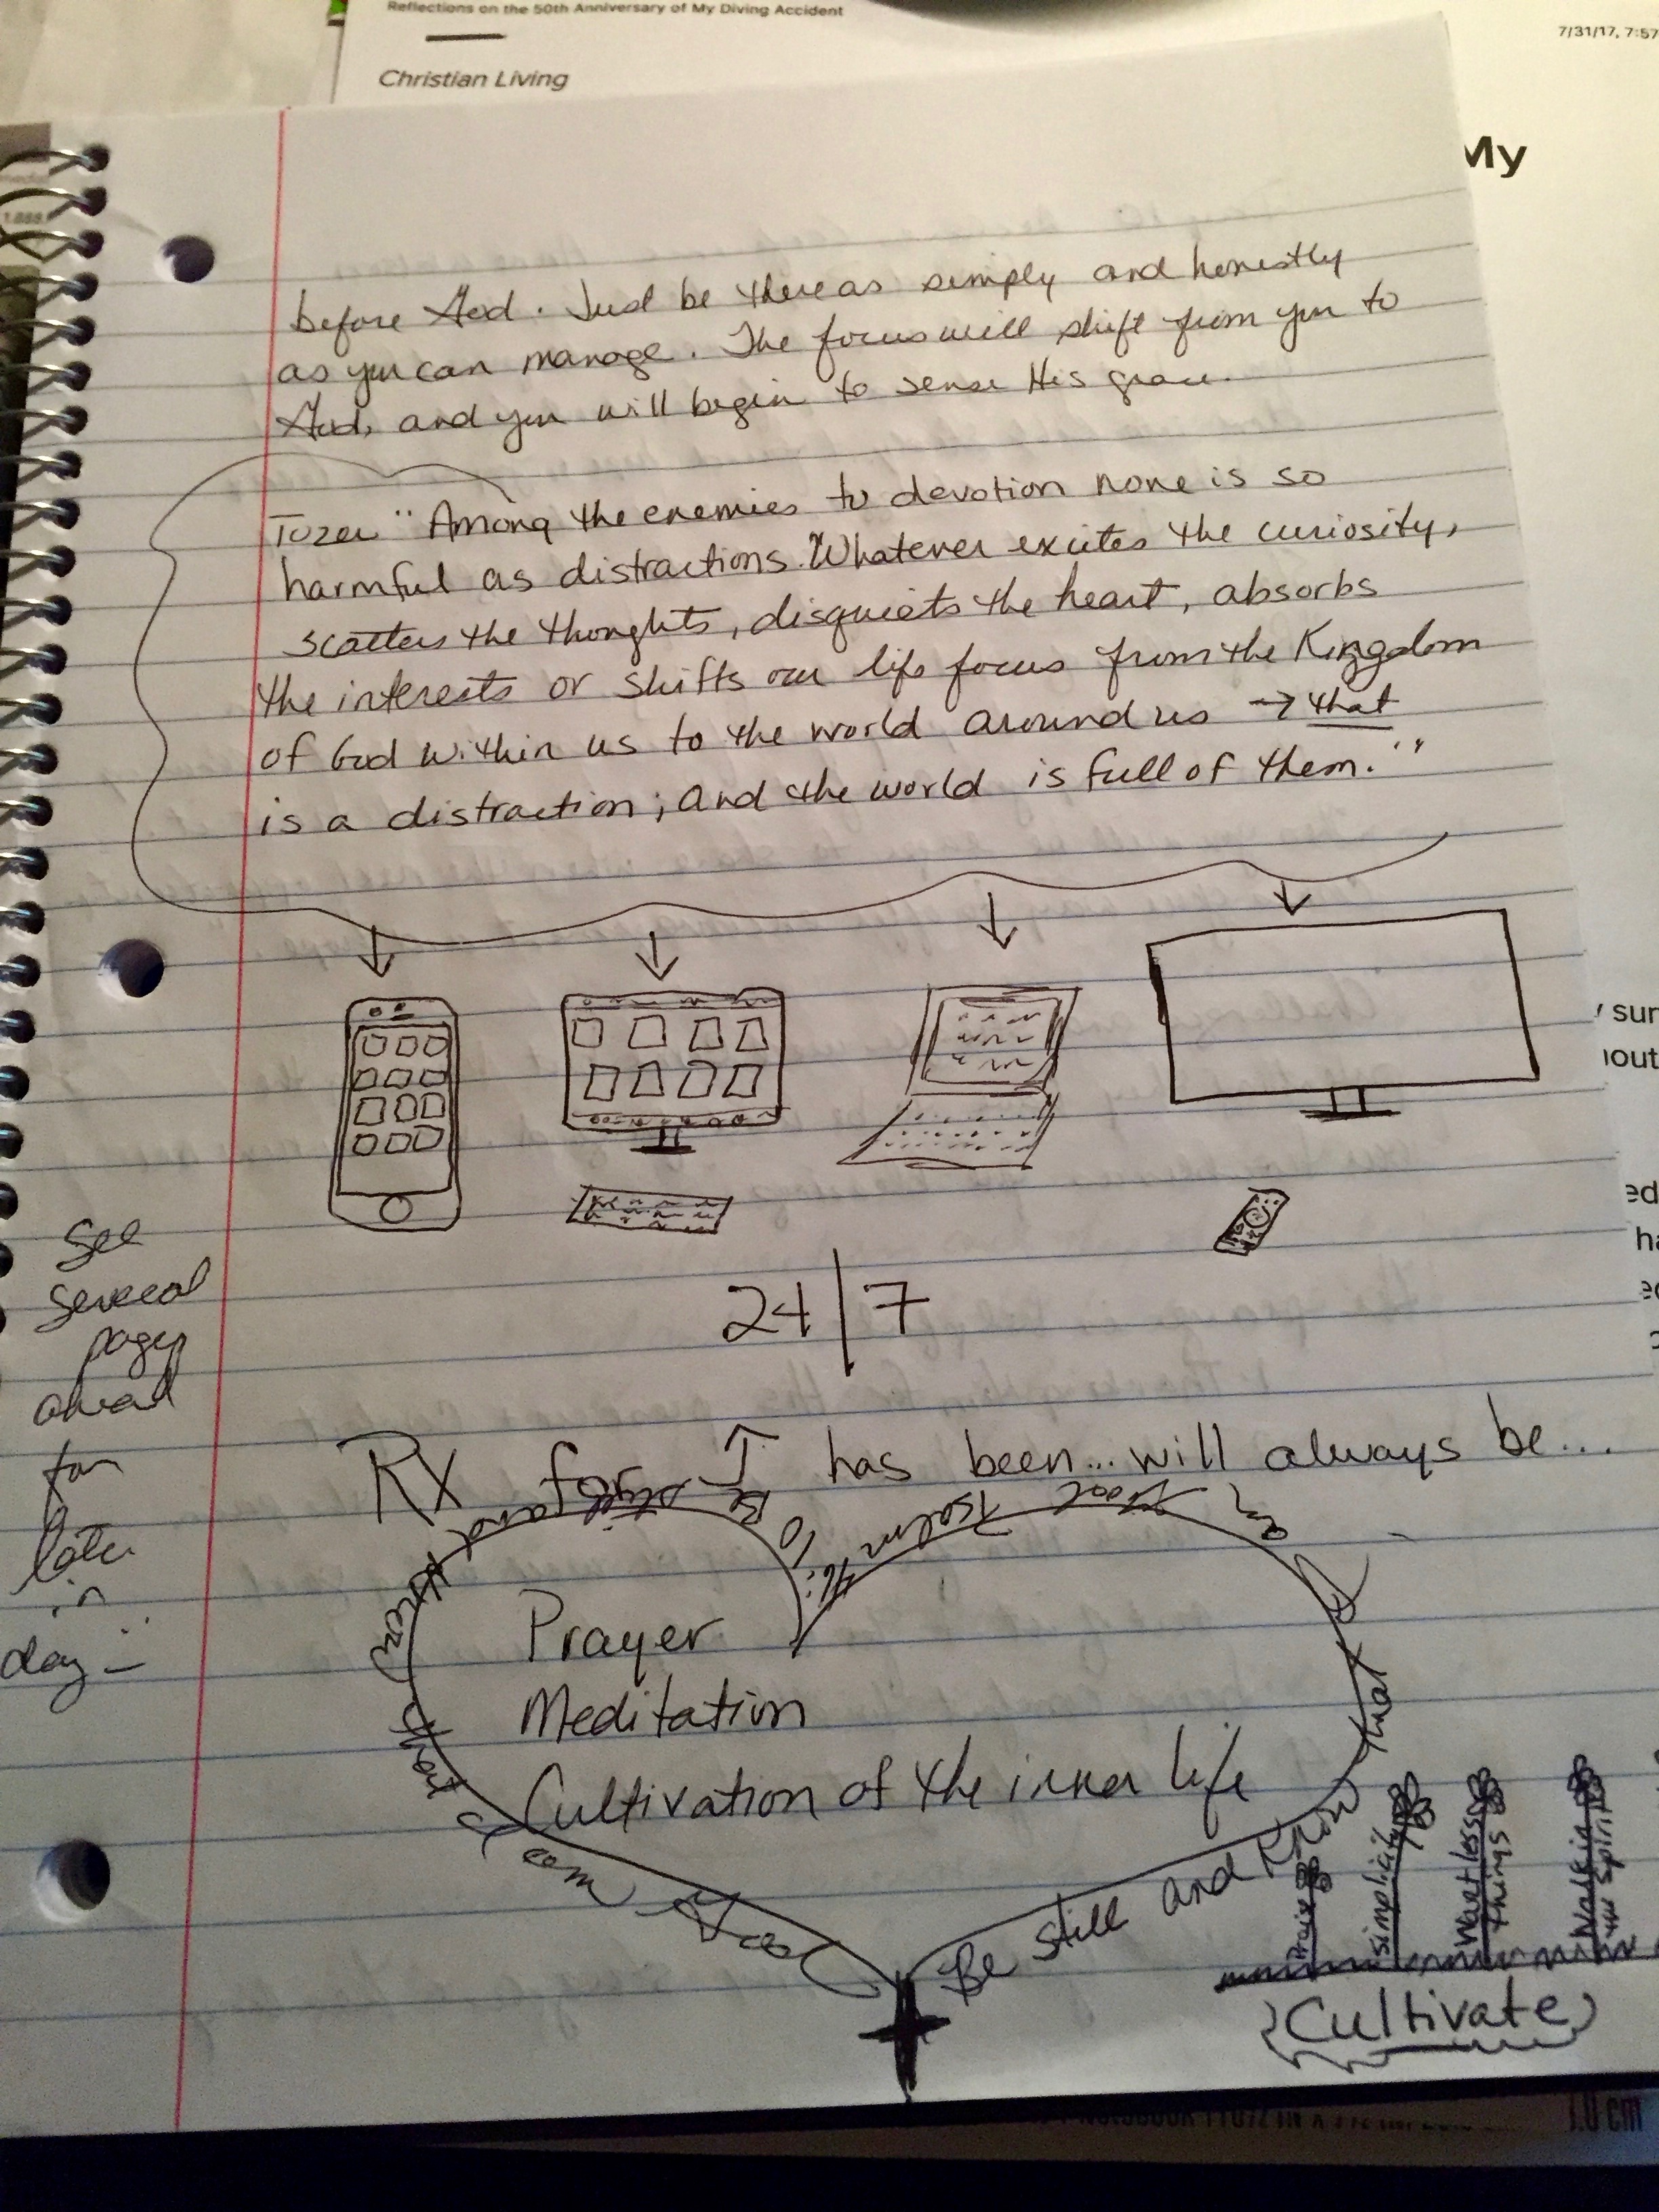 Reflections on the 50th Anniversary of My Diving Accident
7/31/17, 7:57
Christian Living
My
before God. Just be there as simply and honestly
as you can manage. The focus will shift from you to
God, and you will begin to sense His grace.
Tozer "Among the enemies to devotion none is so
harmful as distractions. Whatever excites the curiosity,
scatters the thoughts, disquiets the heart, absorbs
the interests or shifts our life focus from the Kingdom
of God within us to the world around us → that
is a distraction; and the world is full of them."
24/7
See
several
pages
ahead
for
later
in
day
RX for ↑ has been... will always be...
Prayer
Meditation
Cultivation of the inner life
Be still and know that I am God Psalm 46:10
Be still and know that I am God
Praise
simplicity
Want less things
Walk in the Spirit
Cultivate
sur
out
ed
ha
1.0 cm